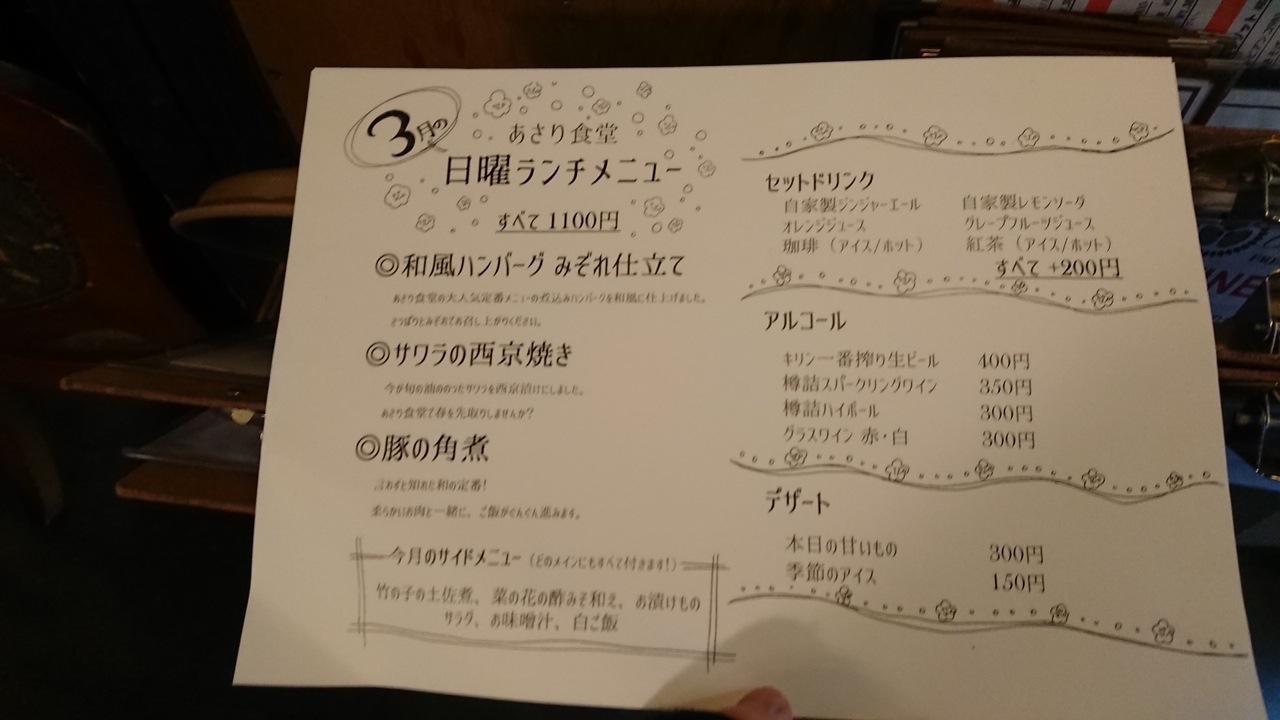 3月の
あさり食堂
日曜ランチメニュー
すべて 1100円
◎和風ハンバーグ みぞれ仕立て
あさり食堂の大人気定番メニューの煮込みハンバーグを和風に仕上げました。
さっぱりとみぞれでお召し上がりください。
◎サワラの西京焼き
今が旬の油ののったサワラを西京漬けにしました。
あさり食堂で春を先取りしませんか?
◎豚の角煮
言わずと知れた和の定番!
柔らかいお肉と一緒に、ご飯がぐんぐん進みます。
今月のサイドメニュー(どのメインにもすべて付きます!)
竹の子の土佐煮、菜の花の酢みそ和え、お漬けもの
サラダ、お味噌汁、白ご飯
セットドリンク
自家製ジンジャーエール 自家製レモンソーダ
オレンジジュース グレープフルーツジュース
珈琲(アイス/ホット) 紅茶(アイス/ホット)
すべて +200円
アルコール
キリン一番搾り生ビール 400円
樽詰スパークリングワイン 350円
樽詰ハイボール 300円
グラスワイン 赤・白 300円
デザート
本日の甘いもの 300円
季節のアイス 150円